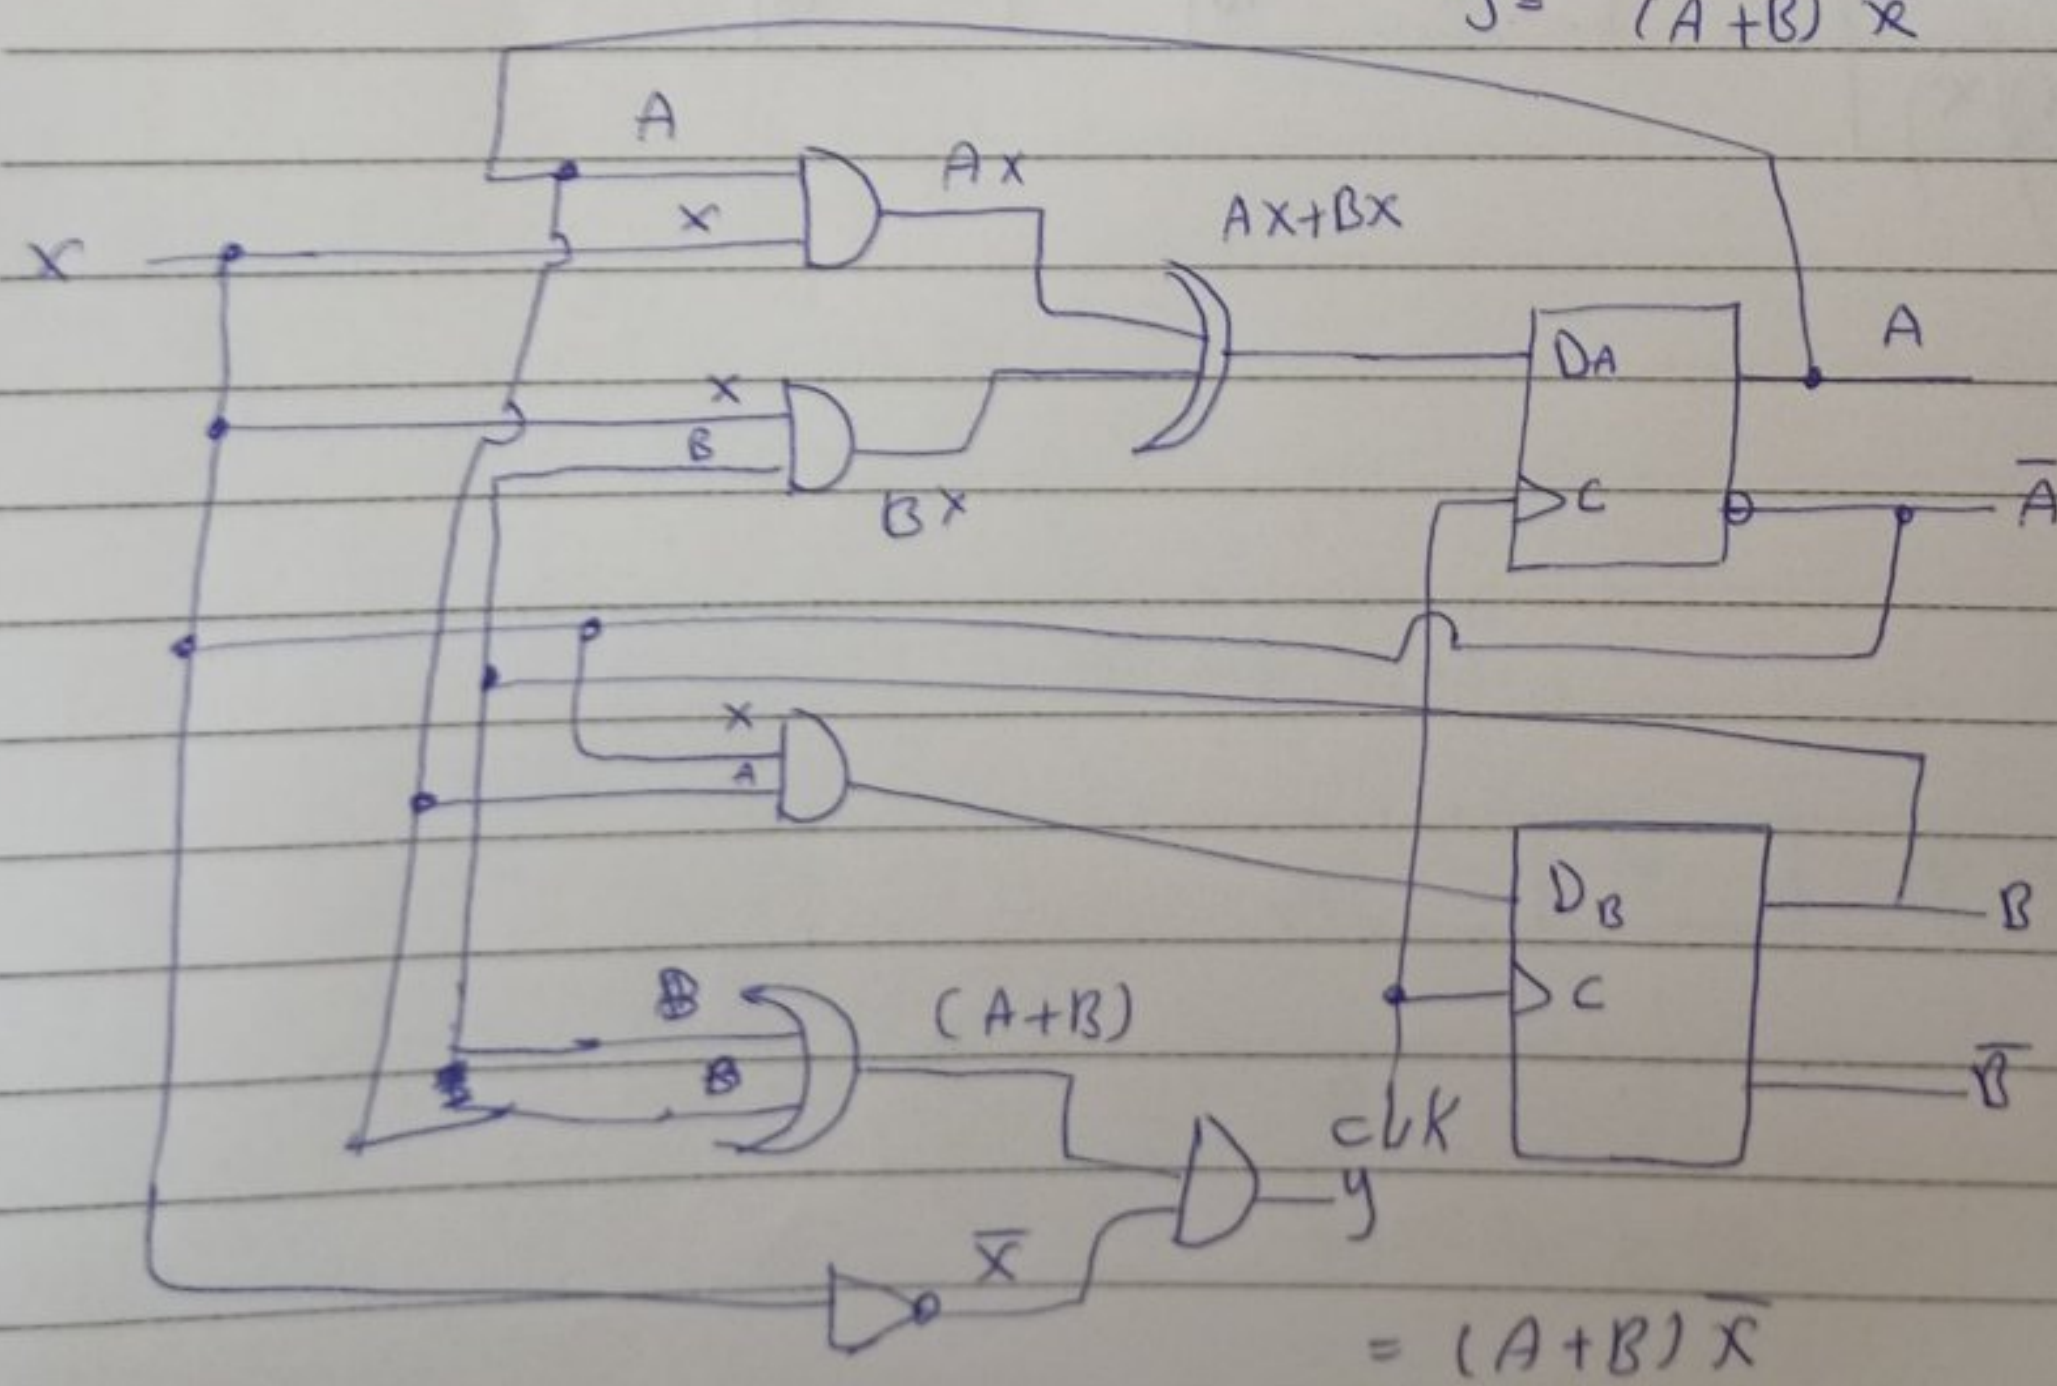 y = (A+B) x
A
Ax
x
Ax+Bx
x
DA
A
x
B
Bx
C
A̅
x
A
DB
B
B
(A+B)
C
B
B̅
CLK
y
x̅
= (A+B) x̅